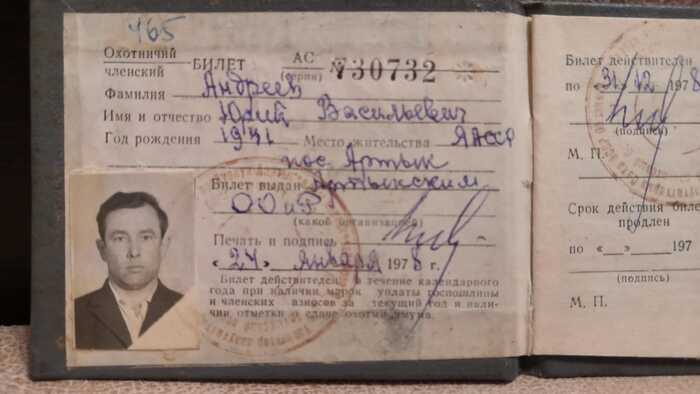 465
Охотничий
членский БИЛЕТ АС 730732
(серия)
Фамилия Андреев
Имя и отчество Юрий Васильевич
Год рождения 1941 Место жительства ЯАССР
пос. Артык
Билет выдан Артыкским
ООиР
(какой организацией)
Печать и подпись
« 24 » января 1978 г.
Билет действителен в течение календарного
года при наличии марок уплаты госпошлины
и членских взносов за текущий год и нали-
чии отметки о сдаче охотминимума.
Билет действителен
по «31» 12 1978
(подпись)
М. П.
Срок действия биле
продлен
по «__»____197
(подпись)
М. П.